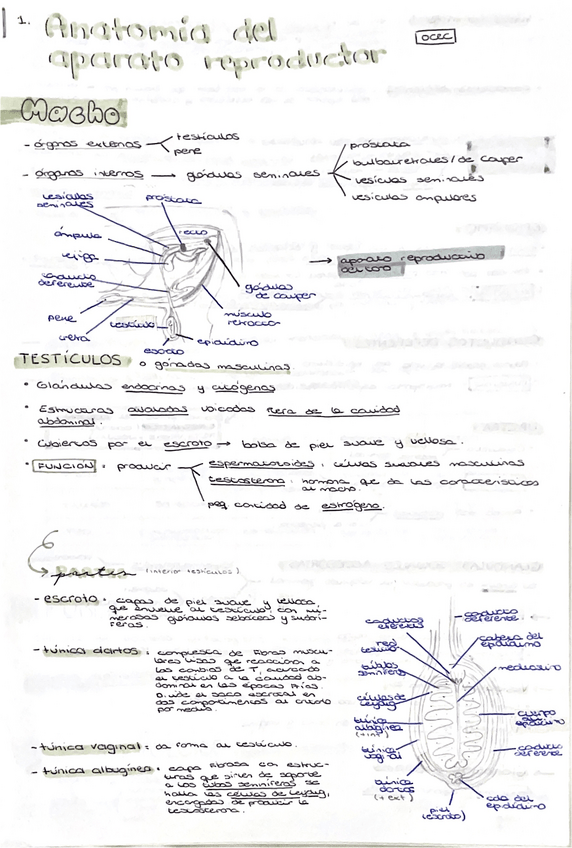 1. Anatomía del
aparato reproductor
OCEC
Macho
- órganos externos
testículos
pene
- órganos internos → glándulas seminales
próstata
bulbouretrales / de cowper
vesículas seminales
vesículas ampulares
vesículas
seminales
próstata
recto
ámpula
vejiga
conducto
deferente
pene
uretra
testículo
escroto
epidídimo
músculo
retractor
glándulas
de cowper
→ aparato reproductivo
del toro
TESTÍCULOS o gónadas masculinas
• Glándulas endocrinas y citógenas
• Estructuras ovaladas ubicadas fuera de la cavidad
abdominal.
• Cubiertas por el escroto → bolsa de piel suave y vellosa.
• FUNCIÓN: producir
espermatozoides: células sexuales masculinas
testosterona: hormona que da las características
al macho.
peq cantidad de estrógeno.
→ partes (interior testículos)
- escroto: capas de piel suave y vellosa
que envuelve al testículo con nu-
merosas glándulas sebáceas y sudorí-
feras.
- túnica dartos: compuesta de fibras muscu-
lares lisas que reacciona a
los cambios de Tº acercando
el testículo a la cavidad ab-
dominal en las épocas frías.
Divide el saco escrotal en
dos compartimentos al cruzarlo
por medio.
- túnica vaginal: da forma al testículo.
- túnica albugínea: capa fibrosa con estruc-
turas que sirven de soporte
a los tubos seminíferos se
halla las células de Leydig,
encargadas de producir la
testosterona.
conductos
eferentes
red
testicular
túbulos
seminíferos
células de
Leydig
túnica
albugínea
(+int)
túnica
vaginal
túnica
dartos
(+ext)
piel
(escroto)
conducto
deferente
cabeza del
epidídimo
mediastino
cuerpo
del
epidídimo
conducto
deferente
cola del
epidídimo